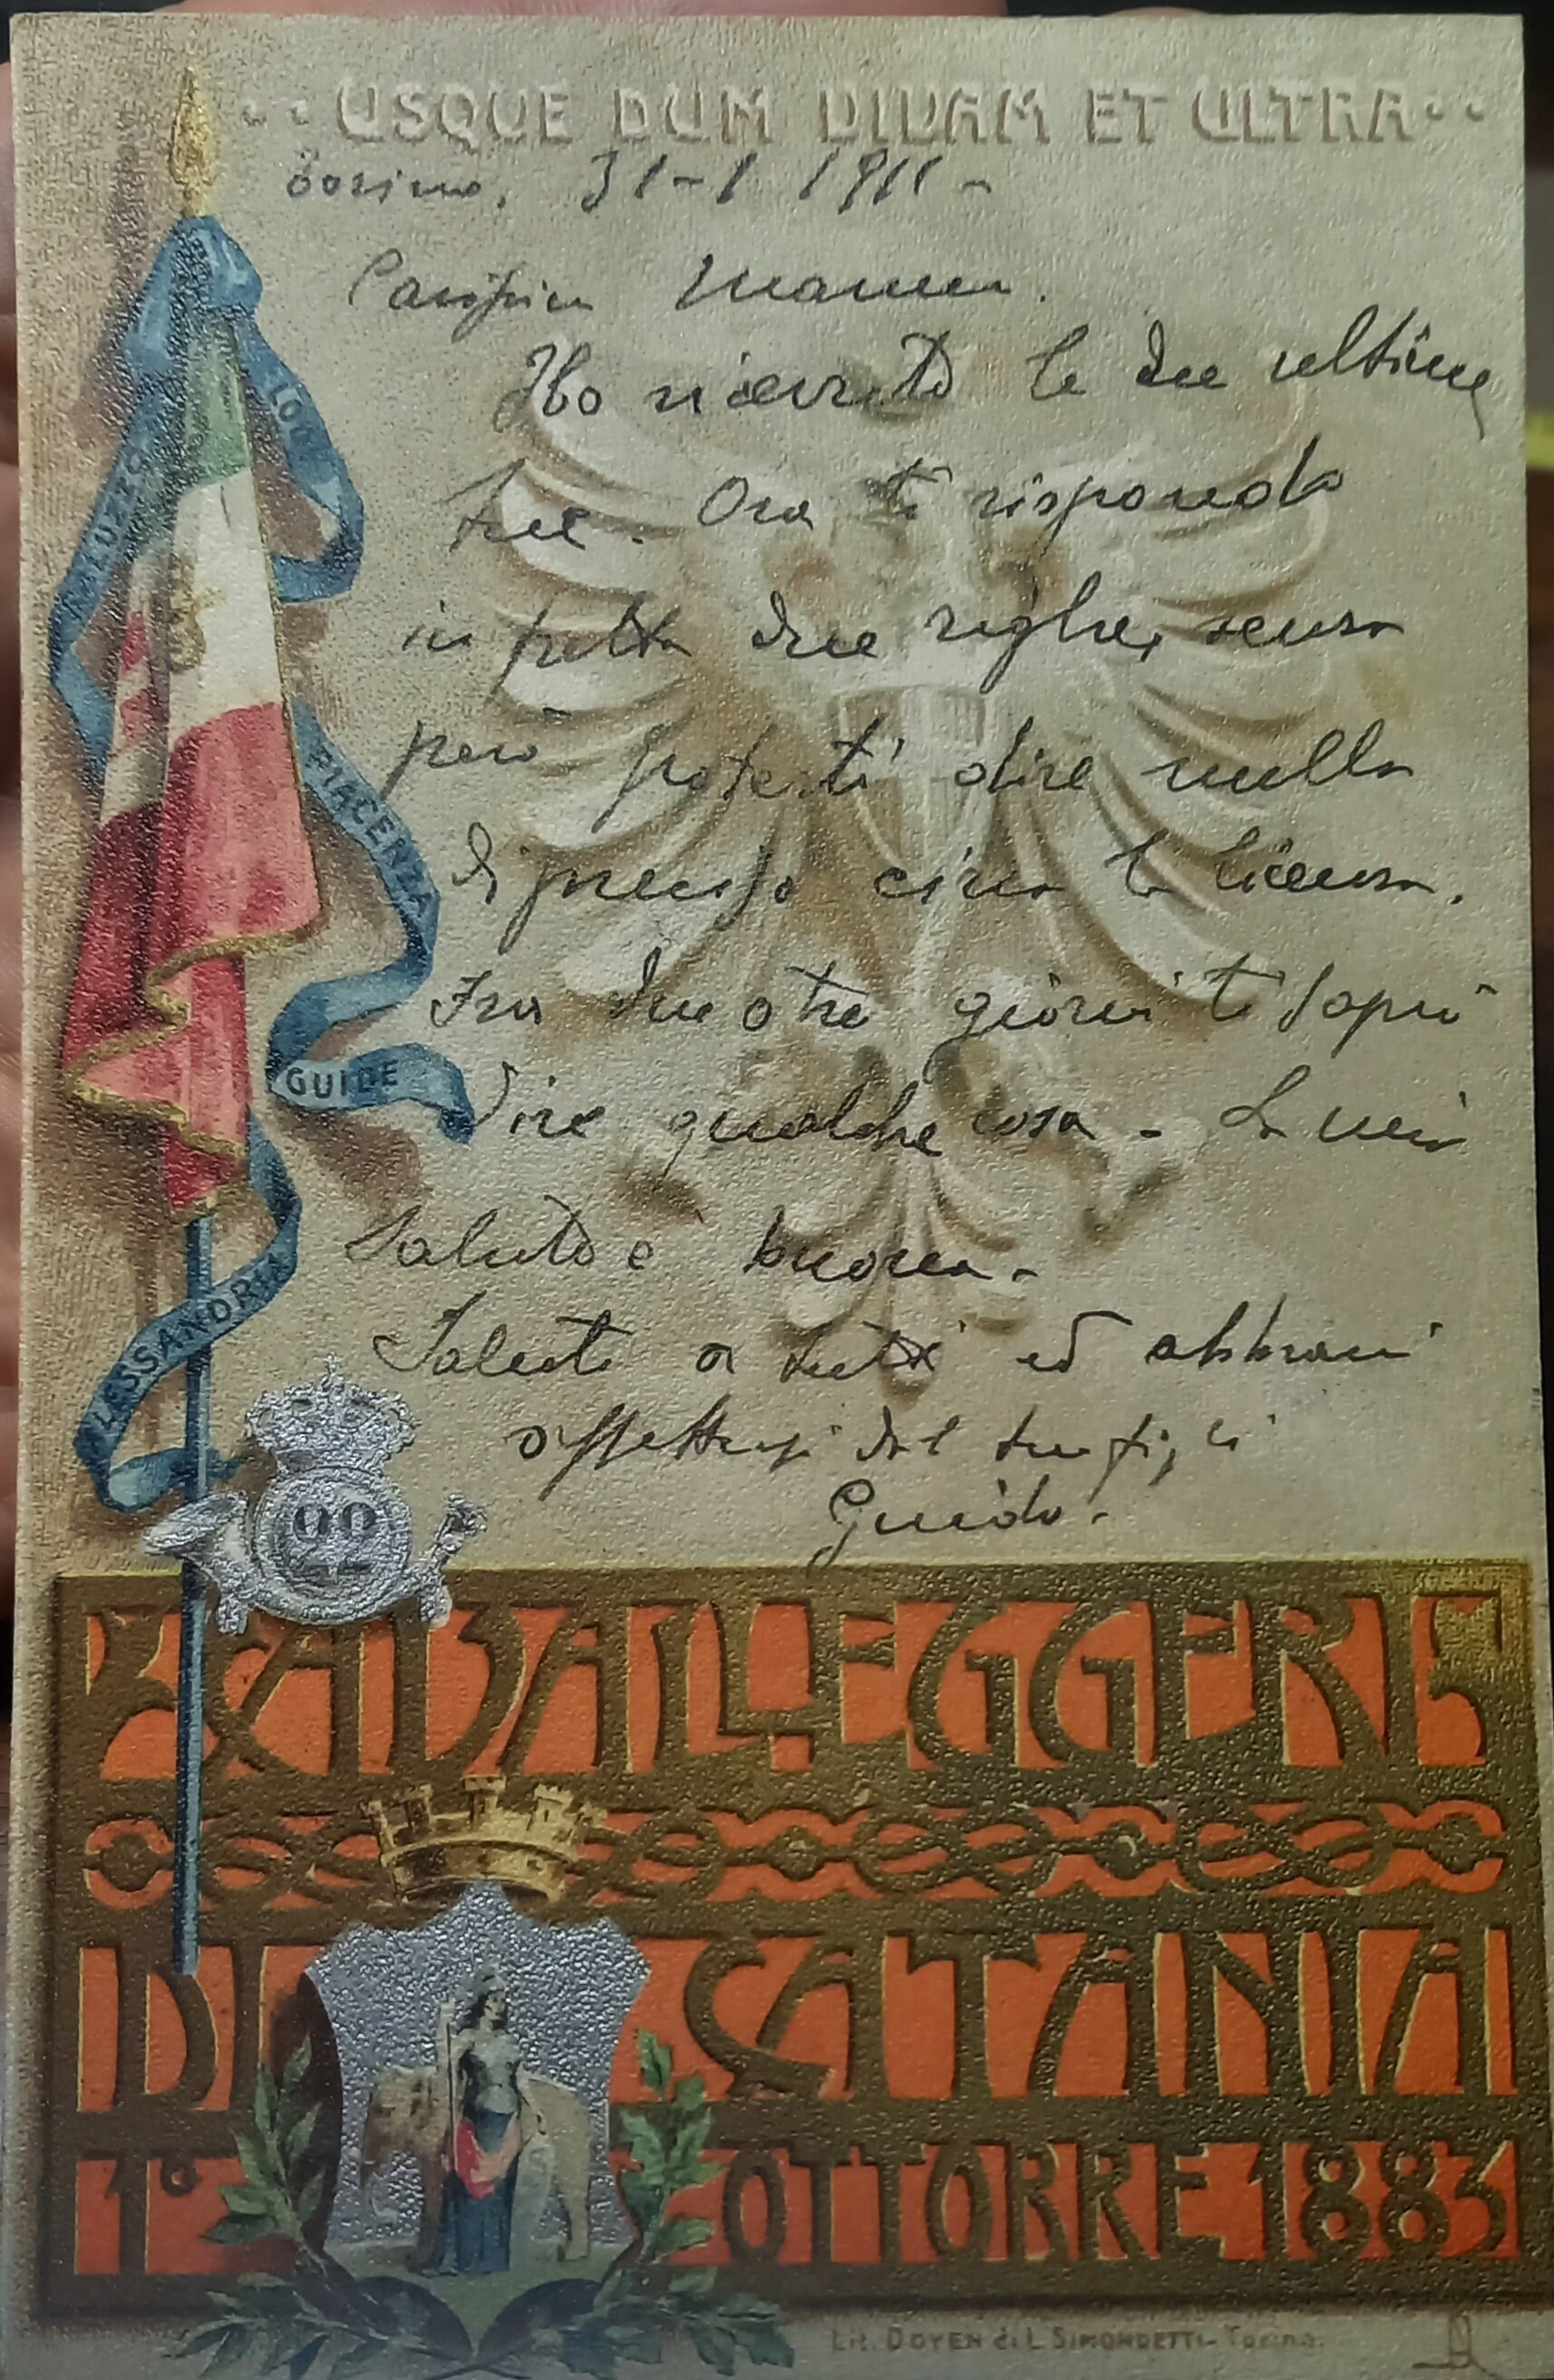 ··USQUE DUM VIVAM ET ULTRA··
Torino, 31-1 1911 -
Carissima Mamma.
Ho ricevuto le due ultime
tue. Ora ti rispondo
in fretta due righe, senza
però poterti dire nulla
di preciso circa la licenza.
Fra due o tre giorni ti saprò
dire qualche cosa - La mia
salute è buona -
Saluti a tutti ed abbracci
affettuosi dal tuo
Guido.
LODI
PIACENZA
GUIDE
ALESSANDRIA
22
CAVALLEGGERI
DI CATANIA
1° OTTOBRE 1883
Lit. DOYEN di L. SIMONDETTI - Torino.